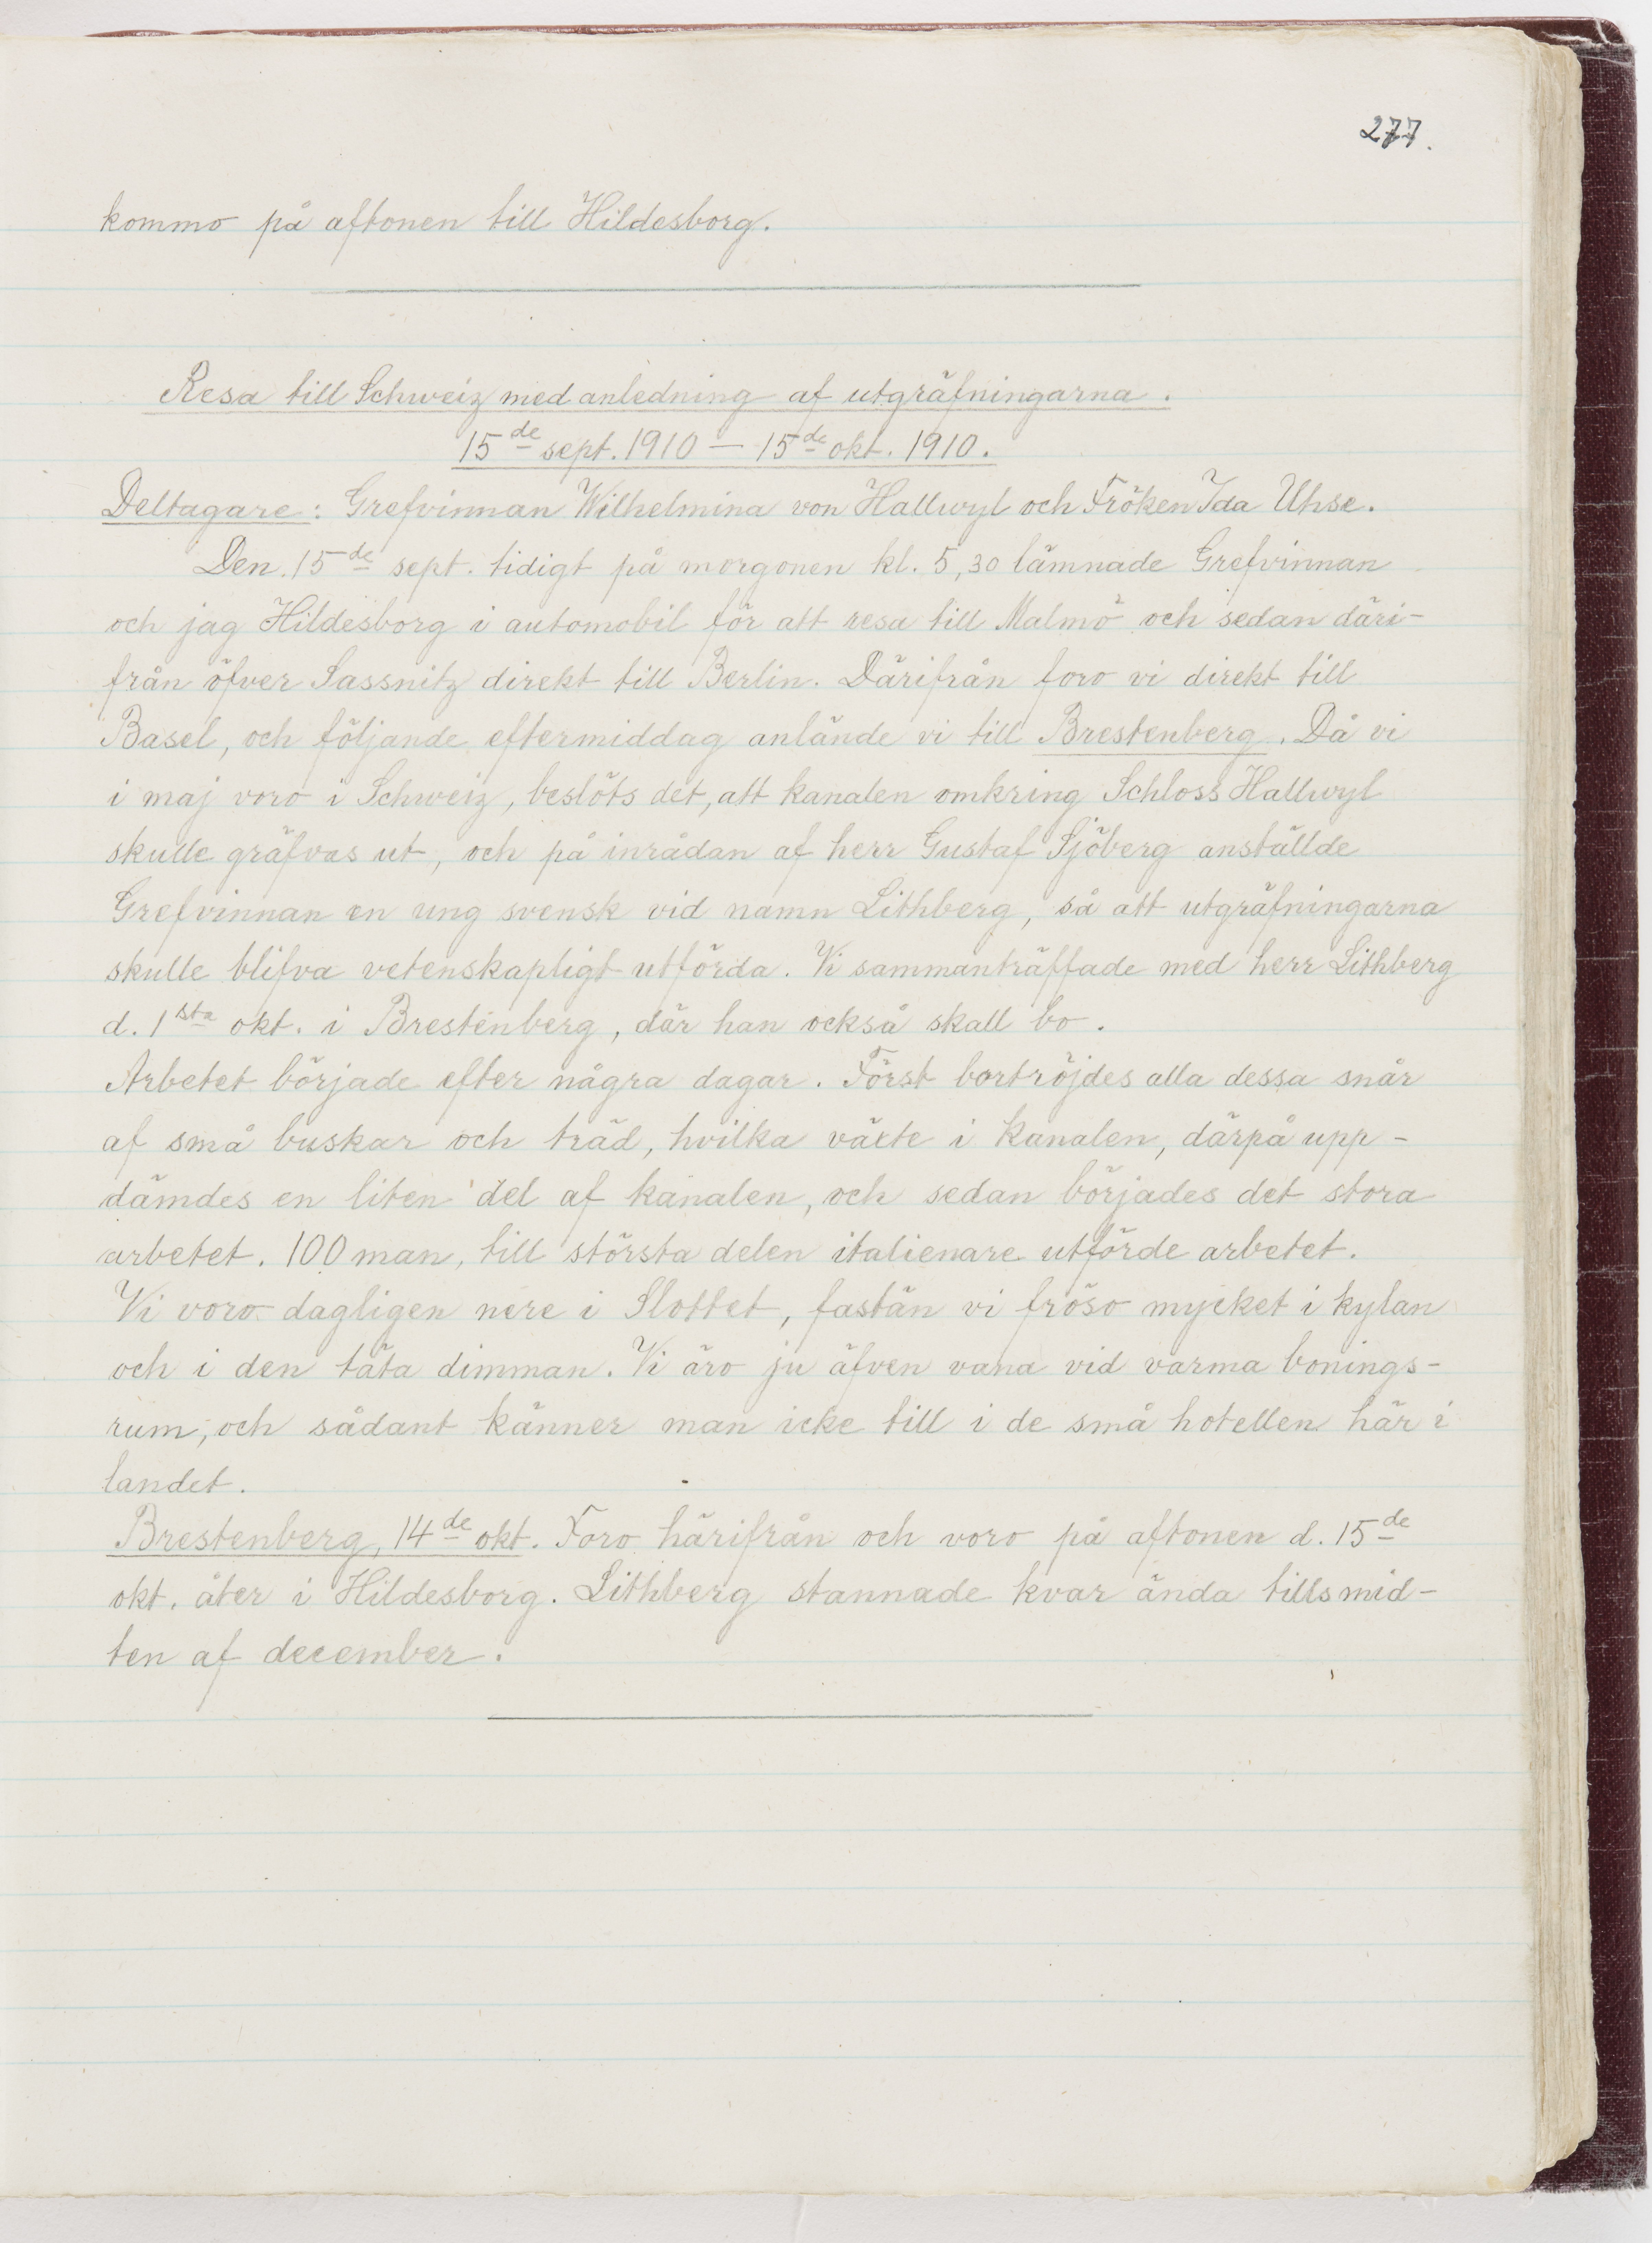 277.
kommo på aftonen till Hildesborg.
Resa till Schweiz med anledning af utgräfningarna.
15de sept. 1910 — 15de okt. 1910.
Deltagare: Grefvinnan Wilhelmina von Hallwyl och Fröken Ida Uhse.
Den 15de sept. tidigt på morgonen kl. 5,30 lämnade Grefvinnan
och jag Hildesborg i automobil för att resa till Malmö och sedan däri-
från öfver Sassnitz direkt till Berlin. Därifrån foro vi direkt till
Basel, och följande eftermiddag anlände vi till Brestenberg. Då vi
i maj voro i Schweiz, beslöts det, att kanalen omkring Schloss Hallwyl
skulle gräfvas ut, och på inrådan af herr Gustaf Sjöberg anställde
Grefvinnan en ung svensk vid namn Lithberg, så att utgräfningarna
skulle blifva vetenskapligt utförda. Vi sammanträffade med herr Lithberg
d. 1sta okt. i Brestenberg, där han också skall bo.
Arbetet började efter några dagar. Först bortröjdes alla dessa snår
af små buskar och träd, hvilka växte i kanalen, därpå upp-
dämdes en liten del af kanalen, och sedan börjades det stora
arbetet. 100 man, till största delen italienare utförde arbetet.
Vi voro dagligen nere i Slottet, fastän vi fröso mycket i kylan
och i den täta dimman. Vi äro ju äfven vana vid varma bonings-
rum, och sådant känner man icke till i de små hotellen här i
landet.
Brestenberg, 14de okt. Foro härifrån och voro på aftonen d. 15de
okt. åter i Hildesborg. Lithberg stannade kvar ända tills mid-
ten af december.